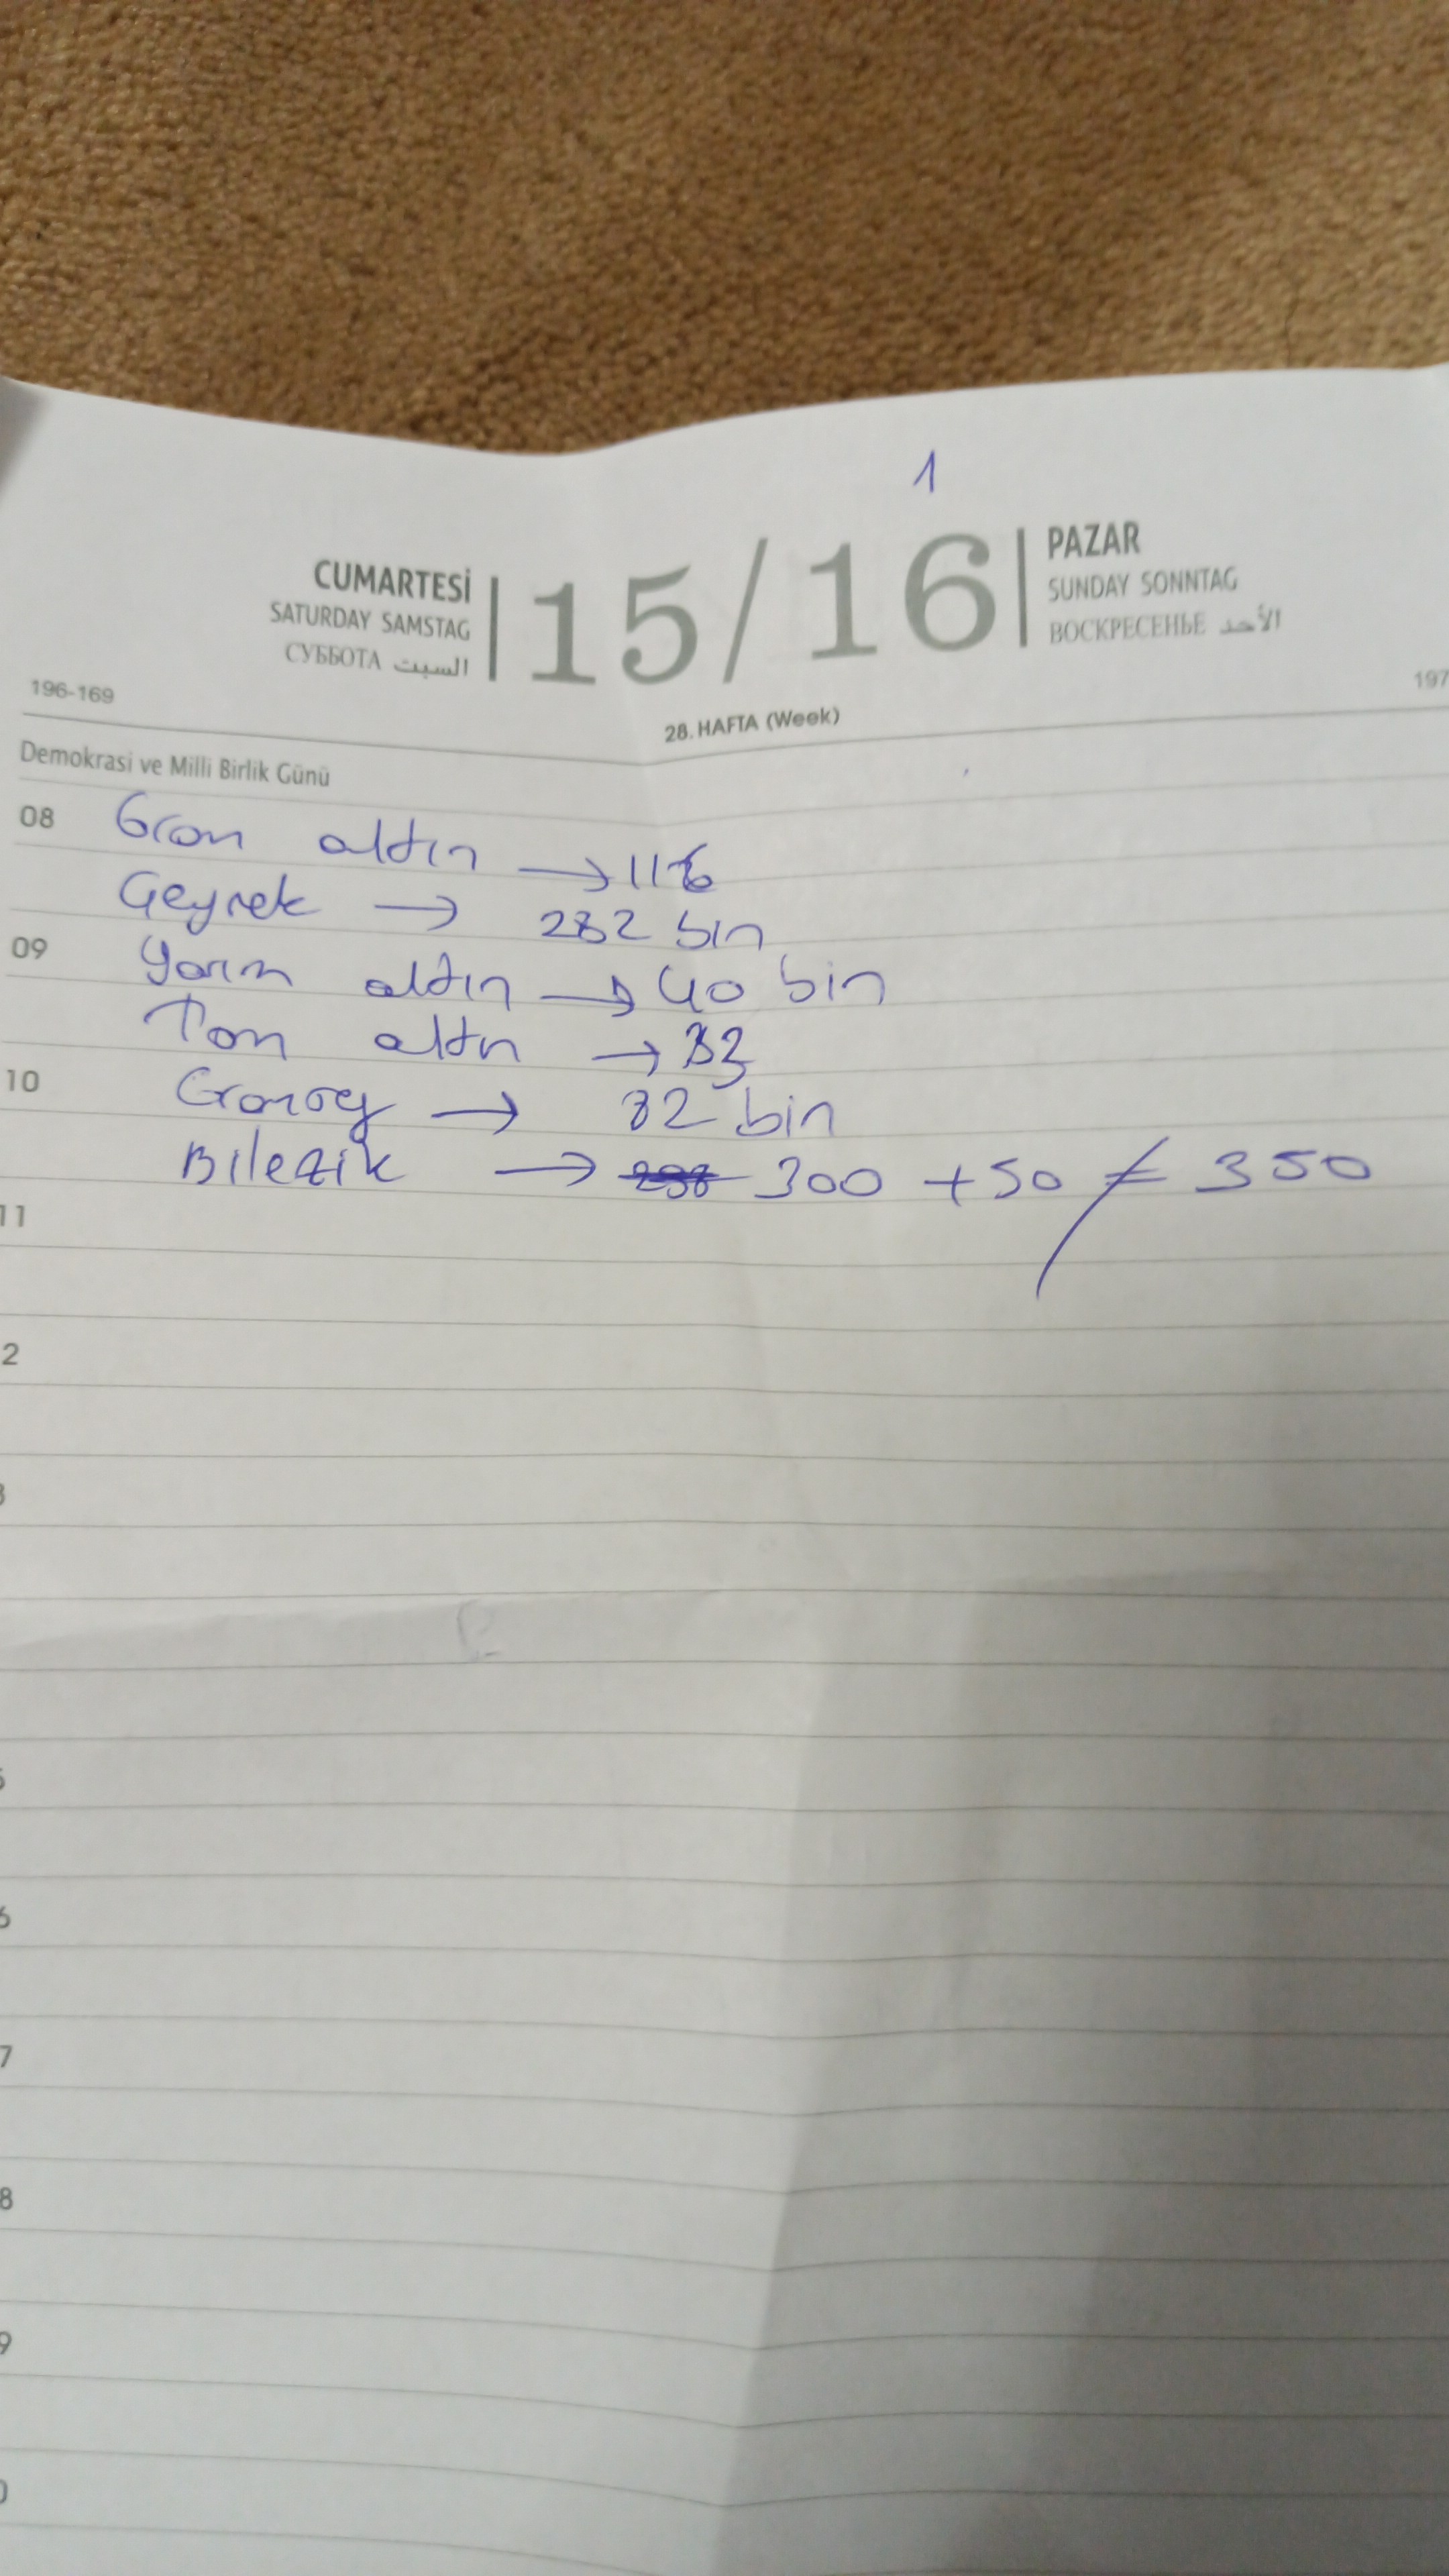 1
CUMARTESİ
SATURDAY SAMSTAG
СУББОТА السبت
15/16
PAZAR
SUNDAY SONNTAG
ВОСКРЕСЕНЬЕ الأحد
196-169
197
28. HAFTA (Week)
Demokrasi ve Milli Birlik Günü
08 Gram altın → 116
Çeyrek → 282 bin
09 Yarım altın → 40 bin
Tam altın → 33
10 → 32 bin
Bilezik → 300 + 50 = 350
11
2
3
5
6
7
8
9
0